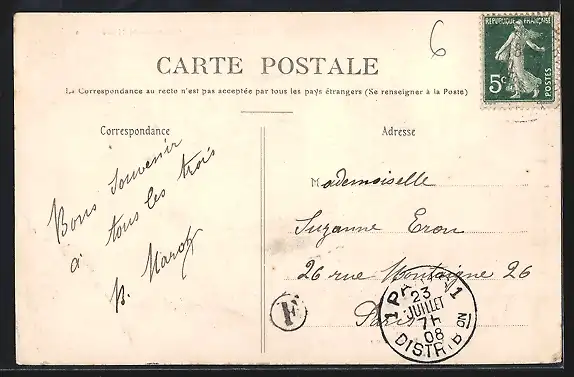 6
REPUBLIQUE FRANÇAISE
5c POSTES
CARTE POSTALE
La Correspondance au recto n'est pas acceptée par tous les pays étrangers (Se renseigner à la Poste)
Correspondance
Bons souvenir
à tous les trois
Adresse
Mademoiselle
Suzanne Eron
26 rue Montaigne 26
Paris
F
1 PARIS 1
23
JUILLET
7H
08
DISTRIBON